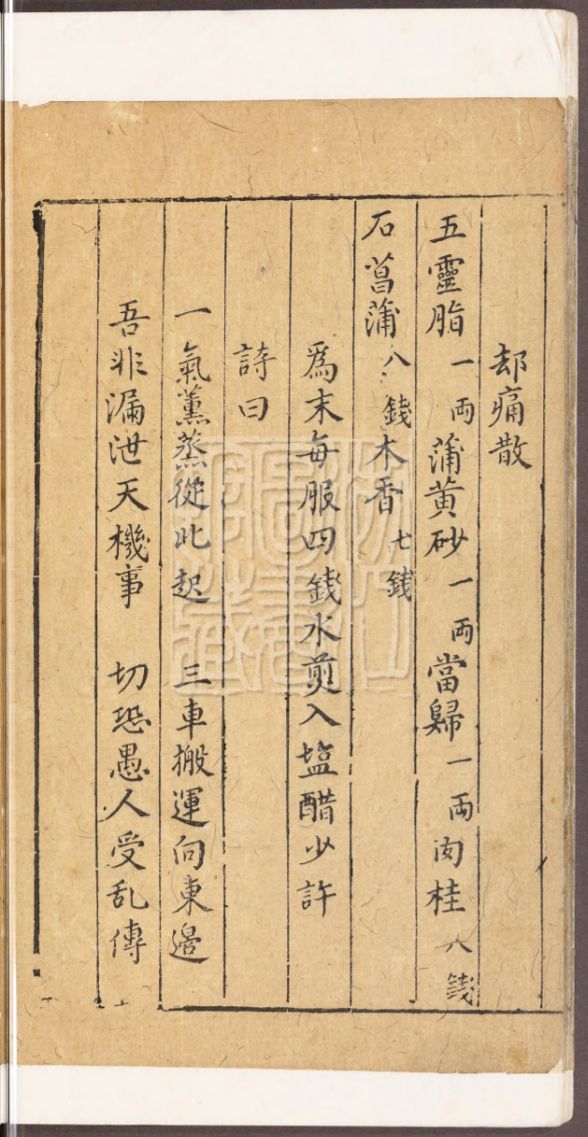 却痛散
五靈脂一両蒲黄砂一両當歸一両肉桂八錢
石菖蒲八錢木香七錢
爲末每服四錢水煎入塩醋少許
詩曰
一氣薰蒸從此起　三車搬運向東邊
吾非漏泄天機事　切恐愚人受乱傳